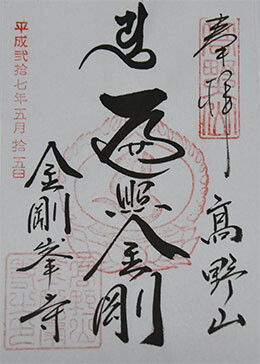 奉拝
高野山
遍照金剛
金剛峯寺
平成貳拾七年五月拾五日